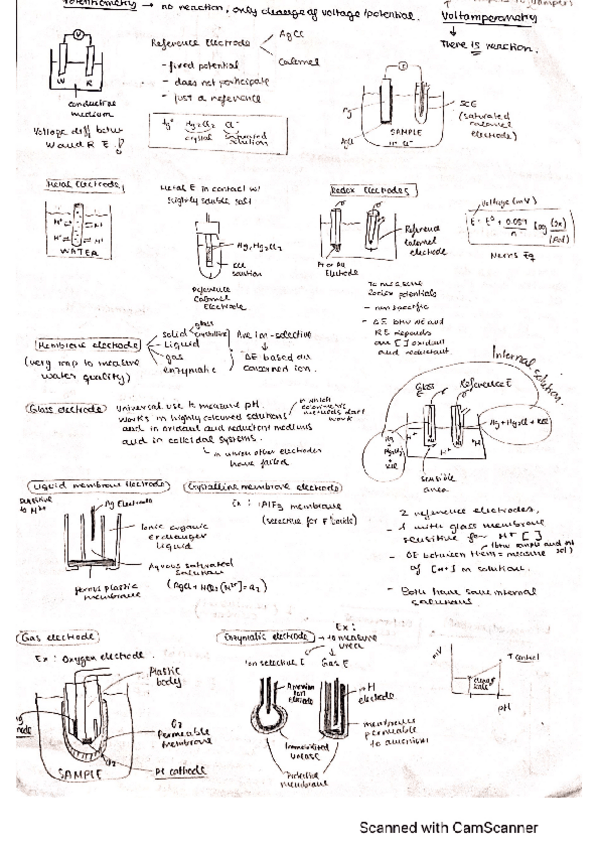 Potentiometry → no reaction, only change of voltage/potential.
Voltamperometry
↓
There is reaction.
V
W R
conductive
medium
Voltage diff betw
W and R E.
Reference Electrode
AgCl
Calomel
- fixed potential
- does not participate
- just a reference
Hg° Hg2Cl2 Cl-
crystal saturated
solution
Ag
AgCl
SAMPLE
SCE
(saturated
calomel
electrode)
Metal Electrode
WATER
Metal E in contact w/
slightly soluble salt
Hg, Hg2Cl2
KCl
solution
Reference
Calomel
Electrode
Redox Electrodes
Reference
calomel
electrode
Pt or Au
Electrode
To measure
redox potentials
- nonspecific
- ΔE btw ME and
RE depends
on [ ] oxidant
and reductant.
voltage (mV)
E = E° + 0.059/n log (Ox)/(Red)
Nerns Eq
Membrane electrode
(very imp to measure
water quality)
solid
glass
crystalline
- Liquid
gas
enzymatic
Are ion-selective
↓
ΔE based on
concerned ion.
Glass electrode
Universal use to measure pH.
works in highly coloured solutions
and in oxidant and reductant mediums
and in colloidal systems.
in which
colorimetric
methods don't
work
in which other electrodes
have failed
Internal solution.
Glass
E
Reference E
Hg + Hg2Cl2 + KCl
H+
sensible
area
2 reference electrodes,
- 1 with glass membrane
sensitive for H+ [ ]
- ΔE between them = measure
of [H+] in solution.
- Both have same internal
solutions
Liquid membrane electrode
Ag Electrode
Ionic organic
exchanger
liquid
Aqueous saturated
solution
porous plastic
membrane
Crystalline membrane electrode
Ex: LAlF3 membrane
(selective for F- ions)
Gas electrode
Ex: Oxygen electrode.
Plastic
body
O2
Permeable
membrane
O2
SAMPLE
Pt cathode
Enzymatic electrode
Ex:
→ to measure
urea
Ion selective E
Gas E
Ammonium
ion
electrode
pH
electrode
membrane
permeable
to ammonium
Immobilized
urease
Protective
membrane
mV
T control
pH
Scanned with CamScanner